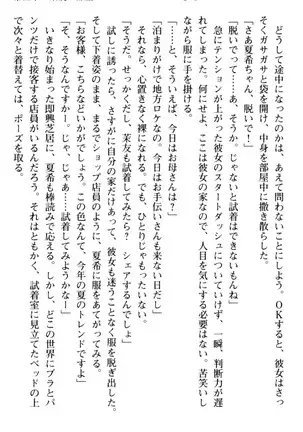 どうして途中になったのかは、あえて問わないことにしよう。OKすると、彼女はさっ
そくガサガサと袋を開け、中身を部屋中に撒き散らした。
「さあ夏希ちゃん、脱いで！」
「脱いでって……あ、そうか。じゃないと試着はできないもんね」
急にテンションが上がった彼女のスタートダッシュについていけず、一瞬、判断力が遅
れてしまった。何にせよ、ここは彼女の家なので、人目を気にする必要はない。苦笑いし
ながら服に手を掛ける。
「……と、そういえば、今日はお母さんは？」
「泊まりがけで地方ロケなの。今日はお手伝いさんも来ない日だし」
それなら、心置きなく裸になれる。でも、ひとりじゃもったいない。
「そうだ。せっかくだし、茉友も試着してみたら？　シェアするんでしょ」
試しに誘ったら、さすがに自分の家だけあって、彼女も迷うことなく服を脱ぎ出した。
そして下着姿のまま、まるでショップ店員のように、夏希に服をあてがってみる。
「お客様、こちらなどいかがでしょう。この色なんて、今年の夏のトレンドですよ」
「そ、そうなんですかー。じゃ、じゃあ……試着してみようかなー」
いきなり始まった即興芝居に、夏希も棒読みで応える。しかし、どこの世界にブラとパ
ンツだけで接客する店員がいるんだろう。それはともかく、試着室に見立てたベッドの上
で次々と着替えては、ポーズを取る。